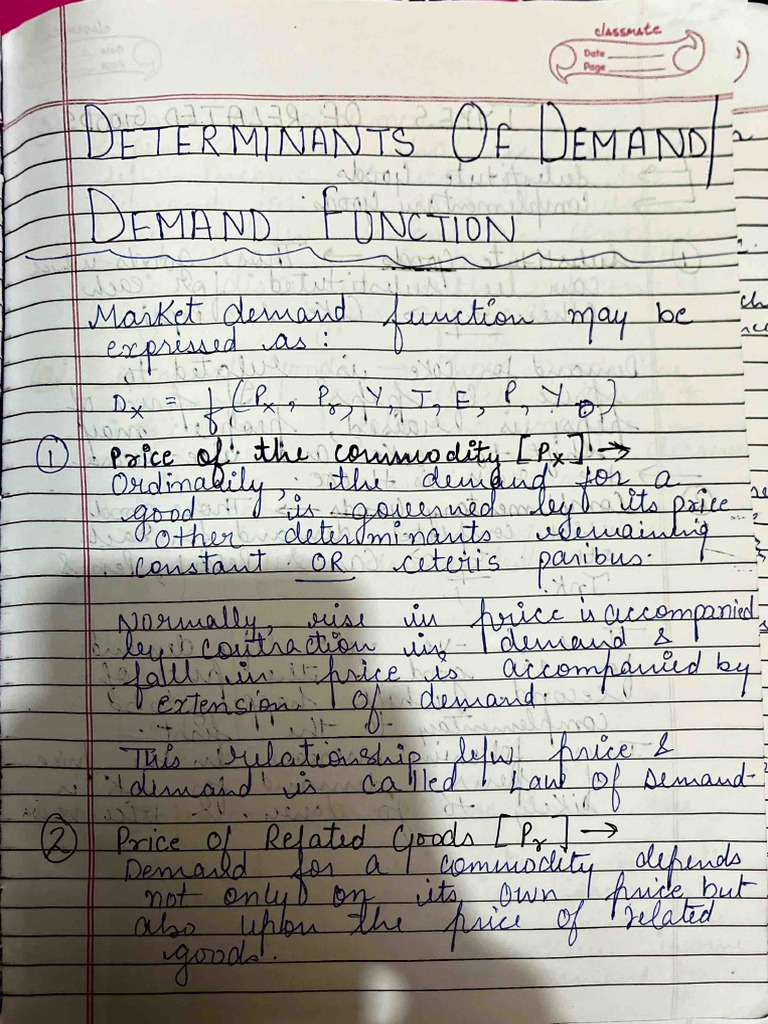 classmate
Date
Page
DETERMINANTS OF DEMAND/
DEMAND FUNCTION
Market demand function may be
expressed as:
Dx = f (Px, Pr, Y, T, E, P, Yo)
① Price of the commodity [Px] →
Ordinarily, the demand for a
good is governed by its price
Other determinants remaining
constant OR ceteris paribus.
Normally, rise in price is accompanied
by contraction in demand &
fall in price is accompanied by
extension of demand
This relationship b/w price &
demand is called Law of Demand-
② Price of Related Goods [Pr] →
Demand for a commodity depends
not only on its own price but
also upon the price of related
goods.